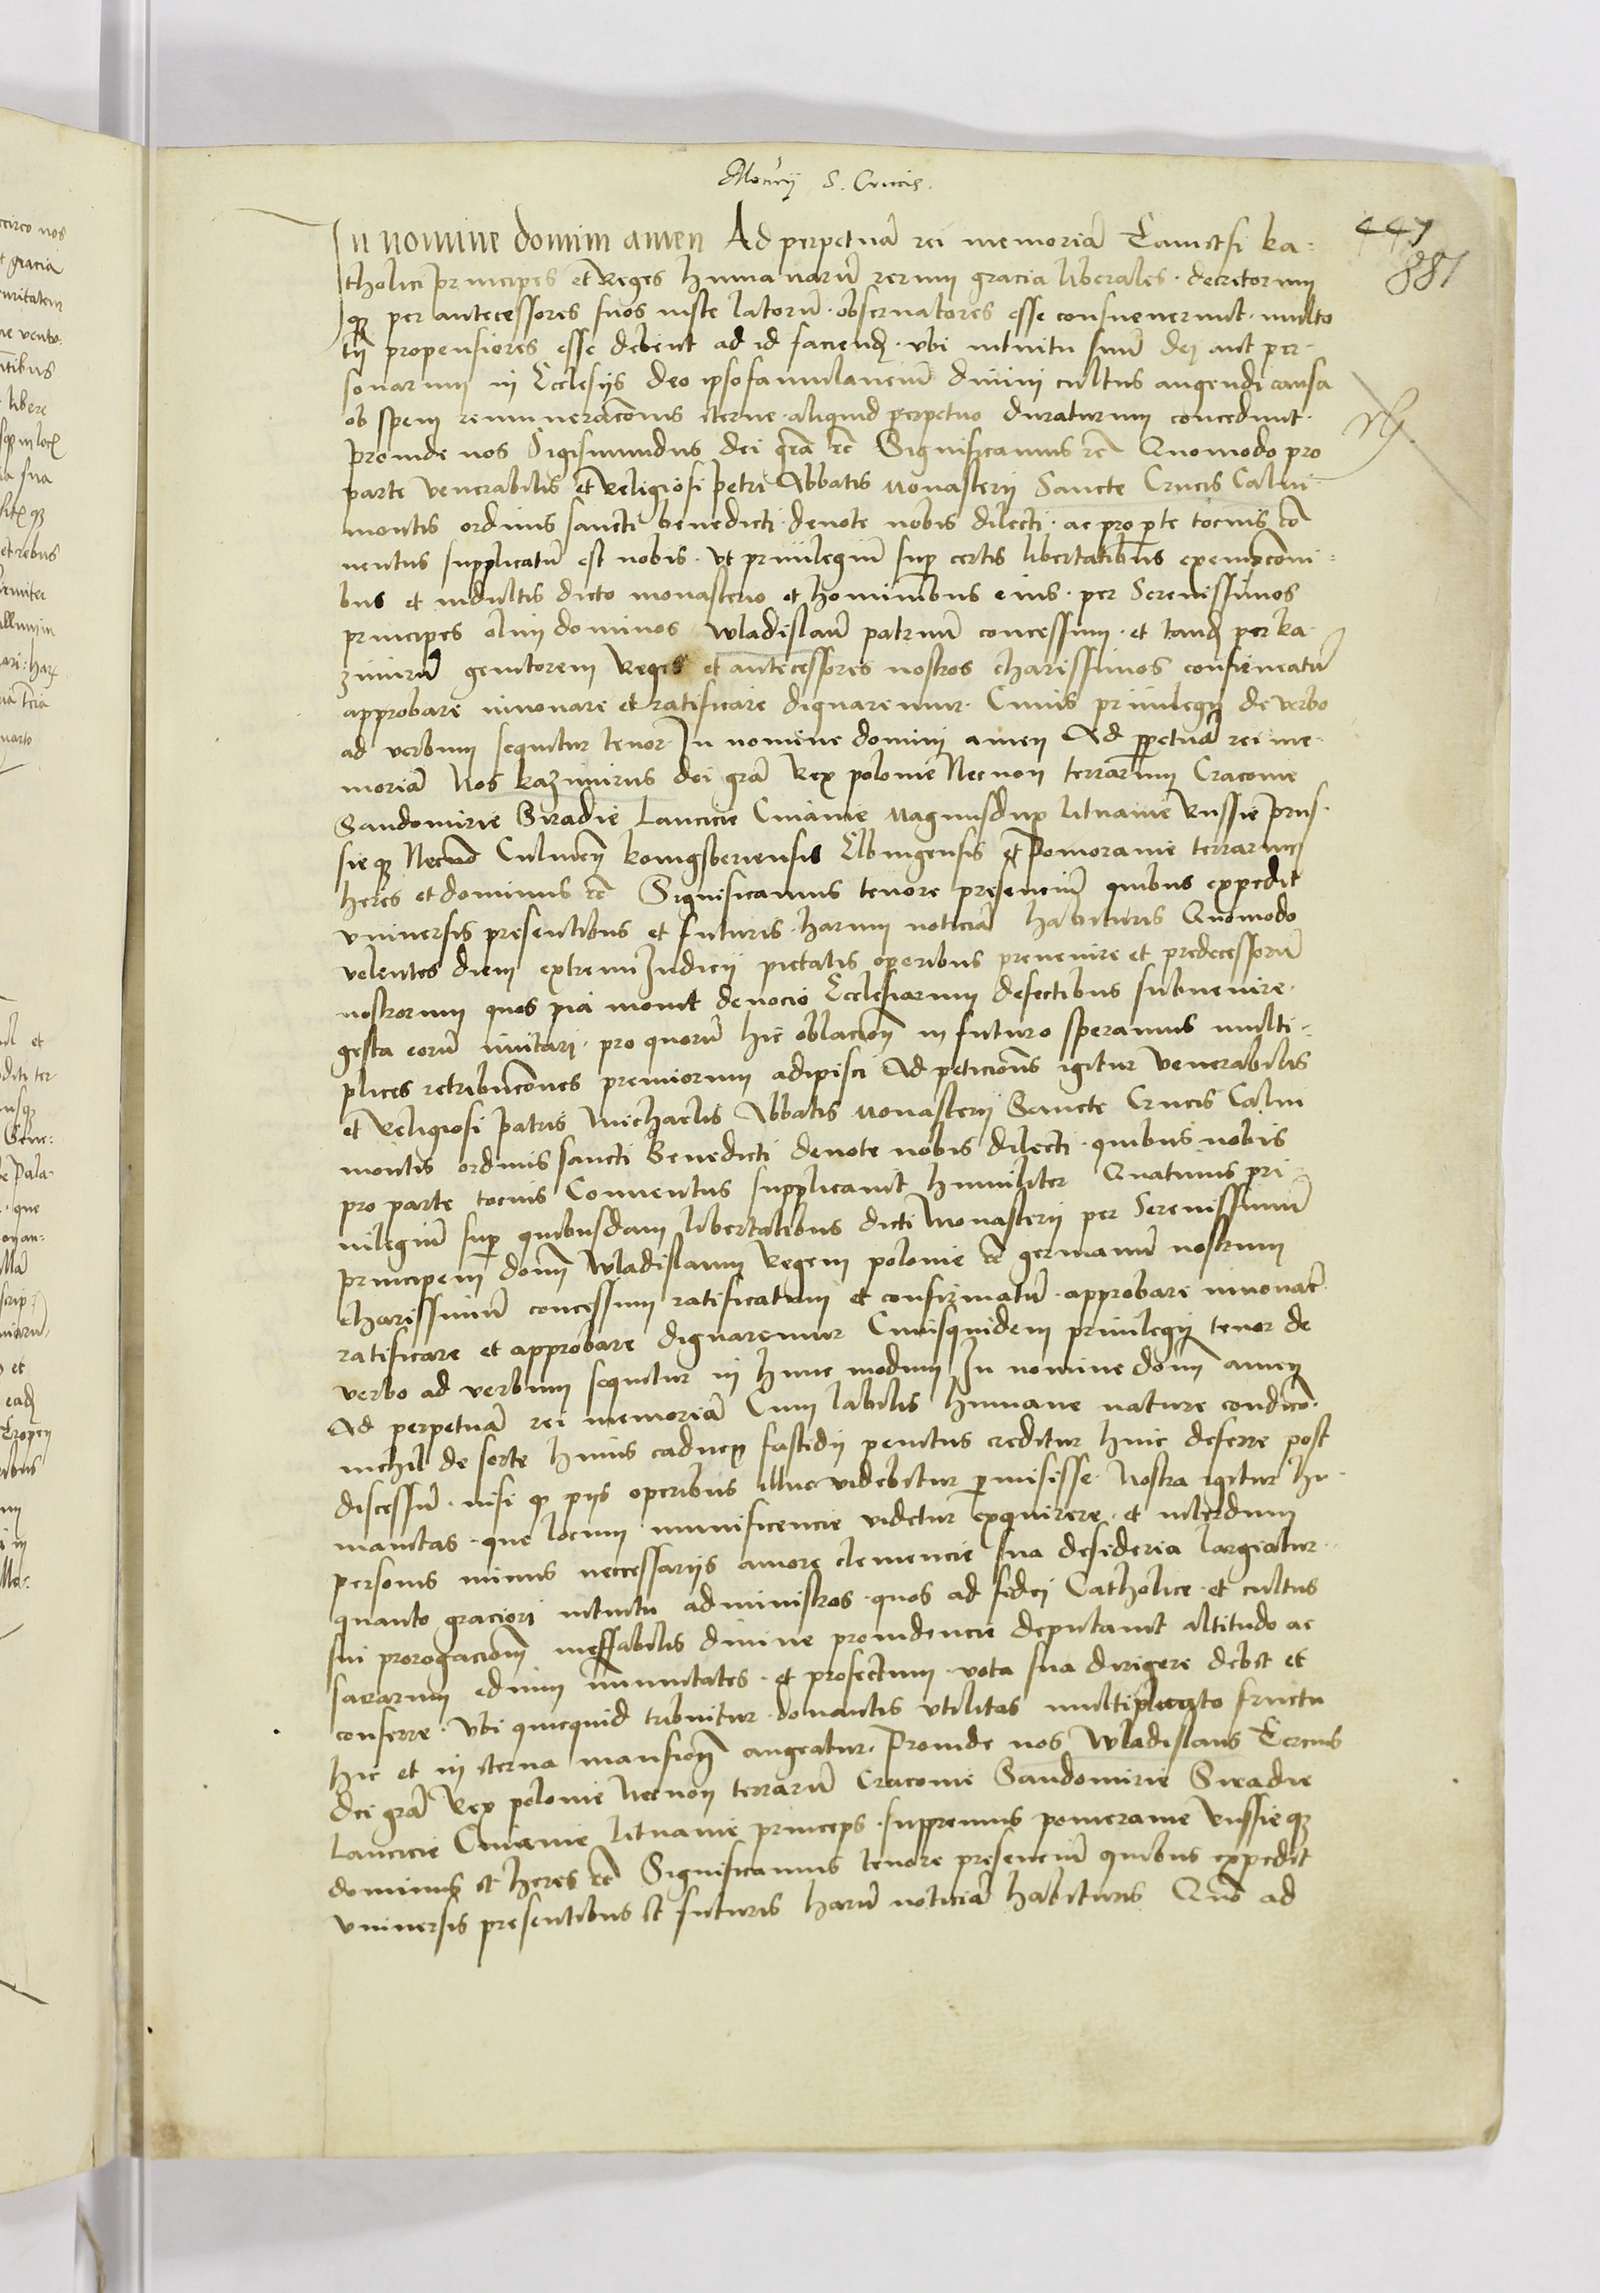 Mon̄rij S. Crucis.
447
881
In nomine domini amen Ad perpetuā rei memoriā Tametsi ka-
tholici principes et Reges humanarū rerum gracia liberales · decretorum
qʒ per antecessores suos iuste latorū · obseruatores esse consueuerunt · multo
tn̄ propensiores esse debent ad id faciend · vbi intuitu summi dei aut per-
sonarum in Ecclesijs deo ipso famulanciū diuini cultus augendi causa
ob spem remuneracōnis eterne · aliquid perpetuo duraturum concedunt ·
proinde nos Sigismundus dei grā rc̄ Significamus rc̄ Quomodo pro
parte venerabilis et Religiosi petri Abbatis Monasterij Sancte Crucis Calui-
montis ordinis sancti benedicti deuote nobis dilecti · ac pro pte tocius cō
uentus supplicatū est nobis · vt priuilegiū sup certis libertatibus exempcōni-
bus et indultis dicto monasterio et hominibus eius · per Serenissimos
principes olim dominos wladislaū patruū concessum · et tand per ka-
zimirū genitorem Reges et antecessores nostros charissimos confirmatū
approbare innouare et ratificare dignaremur · Cuius priuilegij de verbo
ad verbum sequitur tenor · In nomine domini amen Ad ppetuā rei me-
moriā Nos kazimirus dei grā Rex polonie Necnon terrarum Cracouie
Sandomirie Siradie Lancicie Cuiauie Magnusdux lituanie Russie prus-
sieqʒ Necnō Culmeñ konigsberiensis Elbingensis et Pomoranie terrarum
heres et dominus rc̄ Significamus tenore presenciū quibus expedit
vniuersis presentibus et futuris · harum noticiā habituris Quomodo
volentes diem extremi Iudicij pietatis operibus preuenire et predecessorū
nostrorum quos pia mouit deuocio Ecclesiarum defectibus subuenire ·
gesta eorū imitari · pro quorū hic oblacioñ in futuro speramus multi-
plices retribucōnes premiorum adipisci Ad peticiōns igitur venerabilis
et Religiosi patris Michaelis Abbatis Monasterij Sancte Crucis Calui
montis ordinis sancti Benedicti deuote nobis dilecti · quibus nobis
pro parte tocius Conuentus supplicauit humiliter Quatinus pri-
uilegiū sup quibusdam libertatibus dicti Monasterij per Serenissimū
principem domī Wladislaum Regem polonie rc̄ germanū nostrum
charissimū concessum ratificatum et confirmatū · approbare innouar̄
ratificare et approbare dignaremur Cuiusquidem priuilegij tenor de
verbo ad verbum sequitur in hunc modum In nomine domī amen
Ad perpetuā rei memoriā Cum labilis humane nature condicō ·
nichil de sorte huius caduci fastidij penitus creditur huic deferre post
discessū · nisi qʒ pijs operibus illuc videbitur pmisisse · Nostra igitur hu-
manitas · que locum munificencie videtur exquirere · et interdum
personis minus neccessarijs amore clemencie sua desideria largiatur ·
quanto graciori intuitu administros · quos ad fidei Catholice · et cultus
sui prorogacioñ ineffabilis diuine prouidencie deputauit altitudo ac
sacrarum edium immunitates · et profectum · vota sua dirigere debet et
conferre · Vbi quicquid tribuitur · donantis vtilitas multiplicato fructu
hic et in eterna mansioñ augeatur · Proinde nos Wladislaus Tercius
dei grā Rex polonie Necnon terrarū Cracouie Sandomirie Siradie
Lancicie Cuiauie lituanie princeps · suppremus pomeranie Russieqʒ
dominus et heres rc̄ Significamus tenore presenciū quibus expedit
vniuersis presentibus et futuris harū noticiā habituris Quō ad